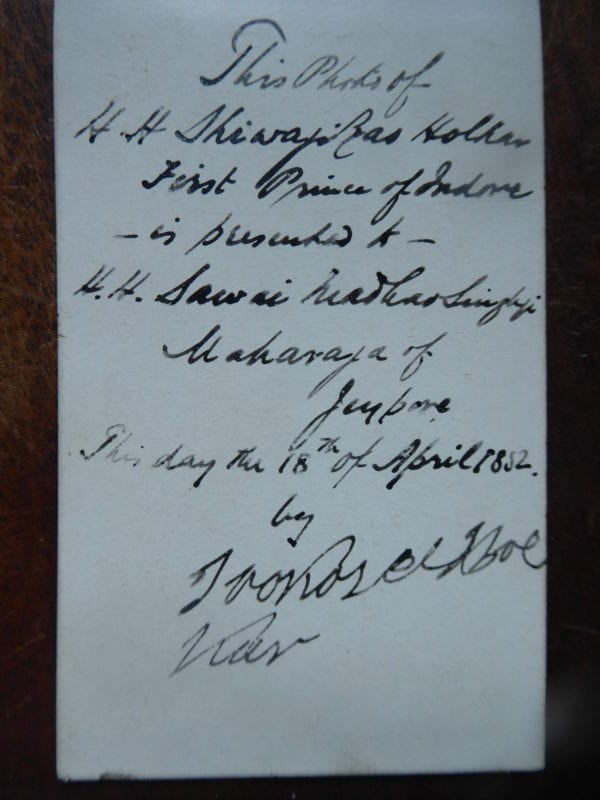 This Photo of
H. H Shiwaji Rao Holkar
First Prince of Indore
— is presented to —
H. H. Sawai Madhao Singhji
Maharaja of
Jeypore
This day the 18th of April 1882.
by
Tookojee Hol
Kar